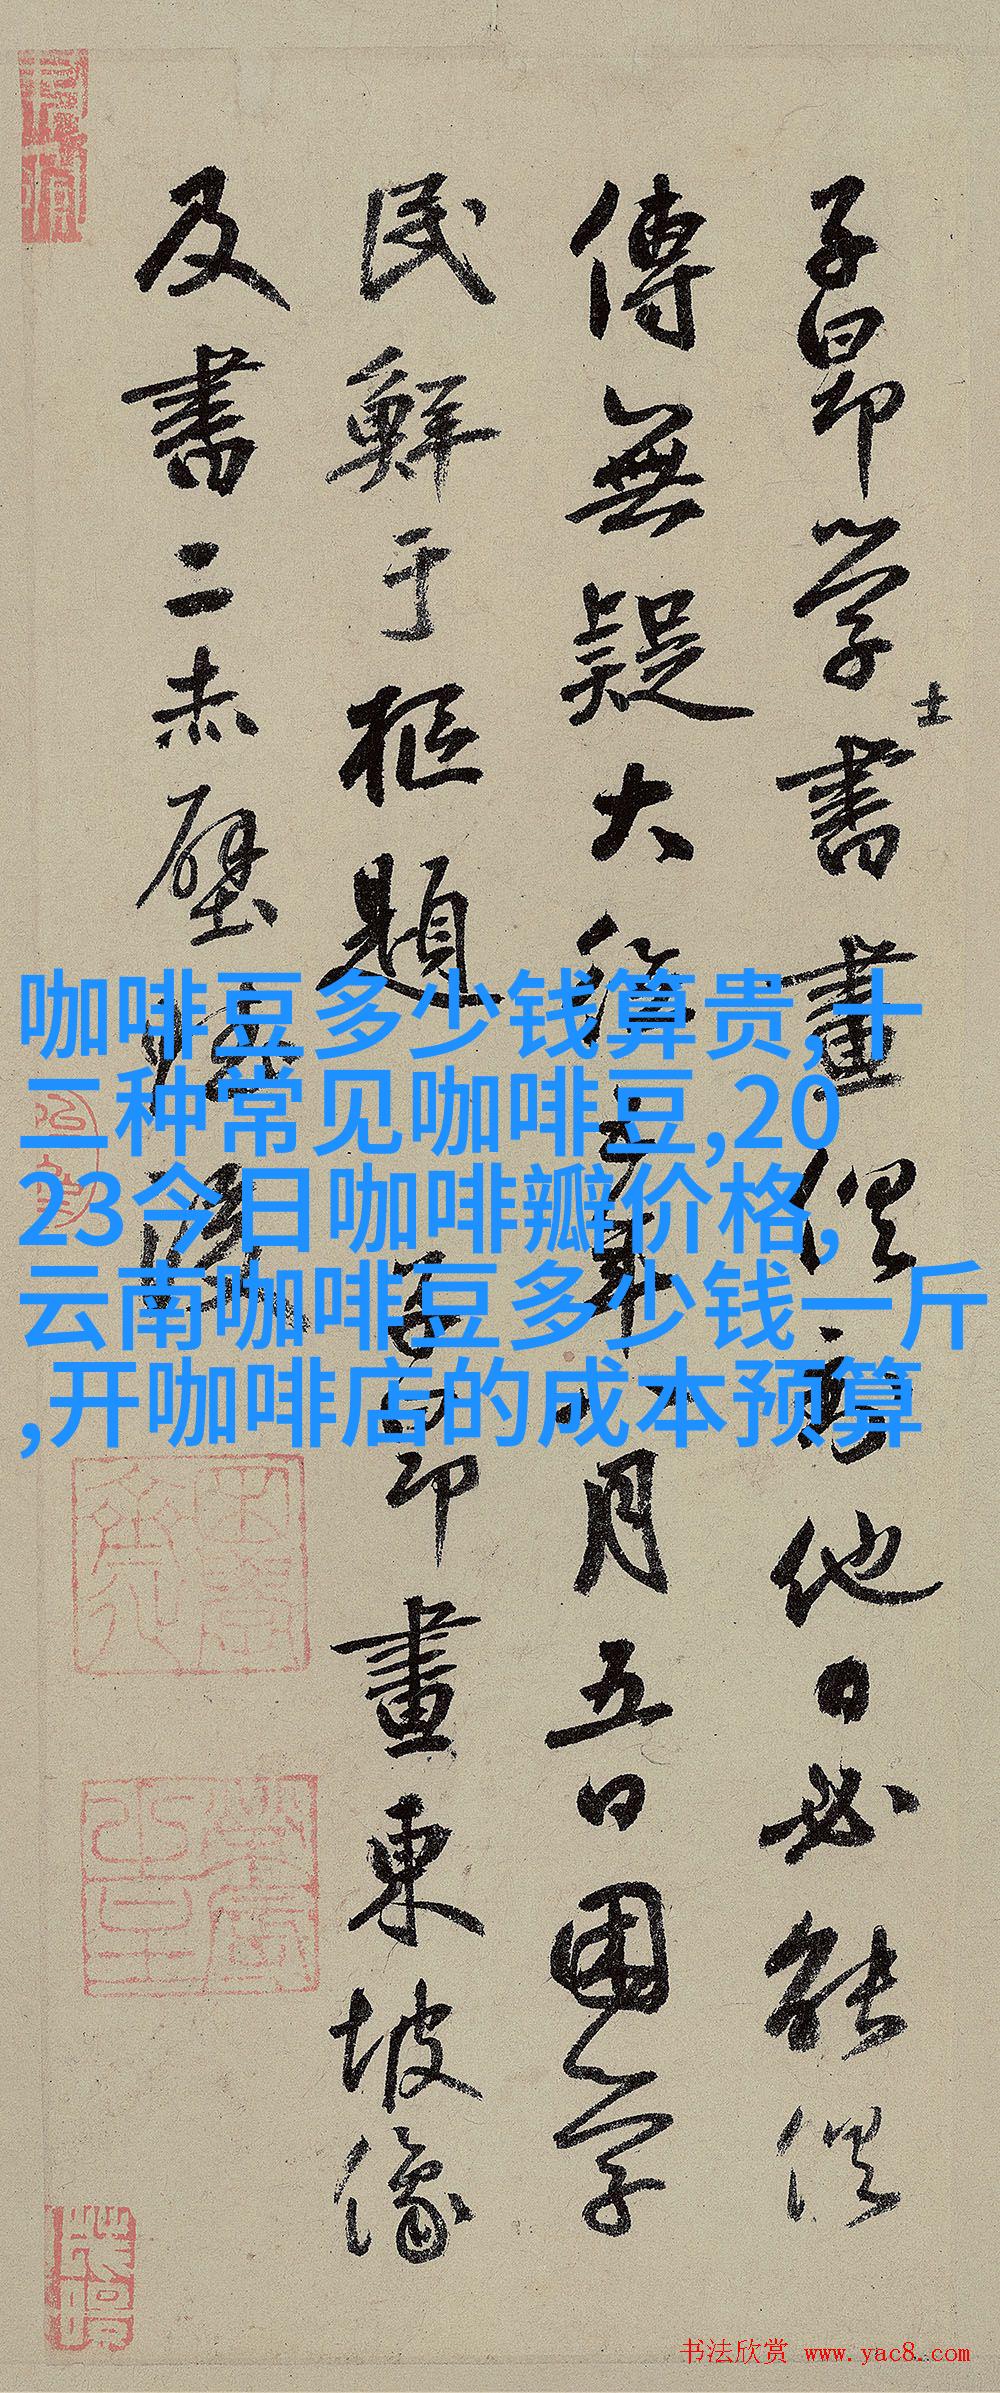 子昂学士書畫俱他日必能俱
傳無疑大德五年八月五日困学
民鮮于樞題 子昂畫東坡像
及書二赤壁賦
咖啡豆多少钱算贵,十
二种常见咖啡豆,20
23今日咖啡瓣价格,
云南咖啡豆多少钱一斤
,开咖啡店的成本预算
书法欣赏 www.yac8.com